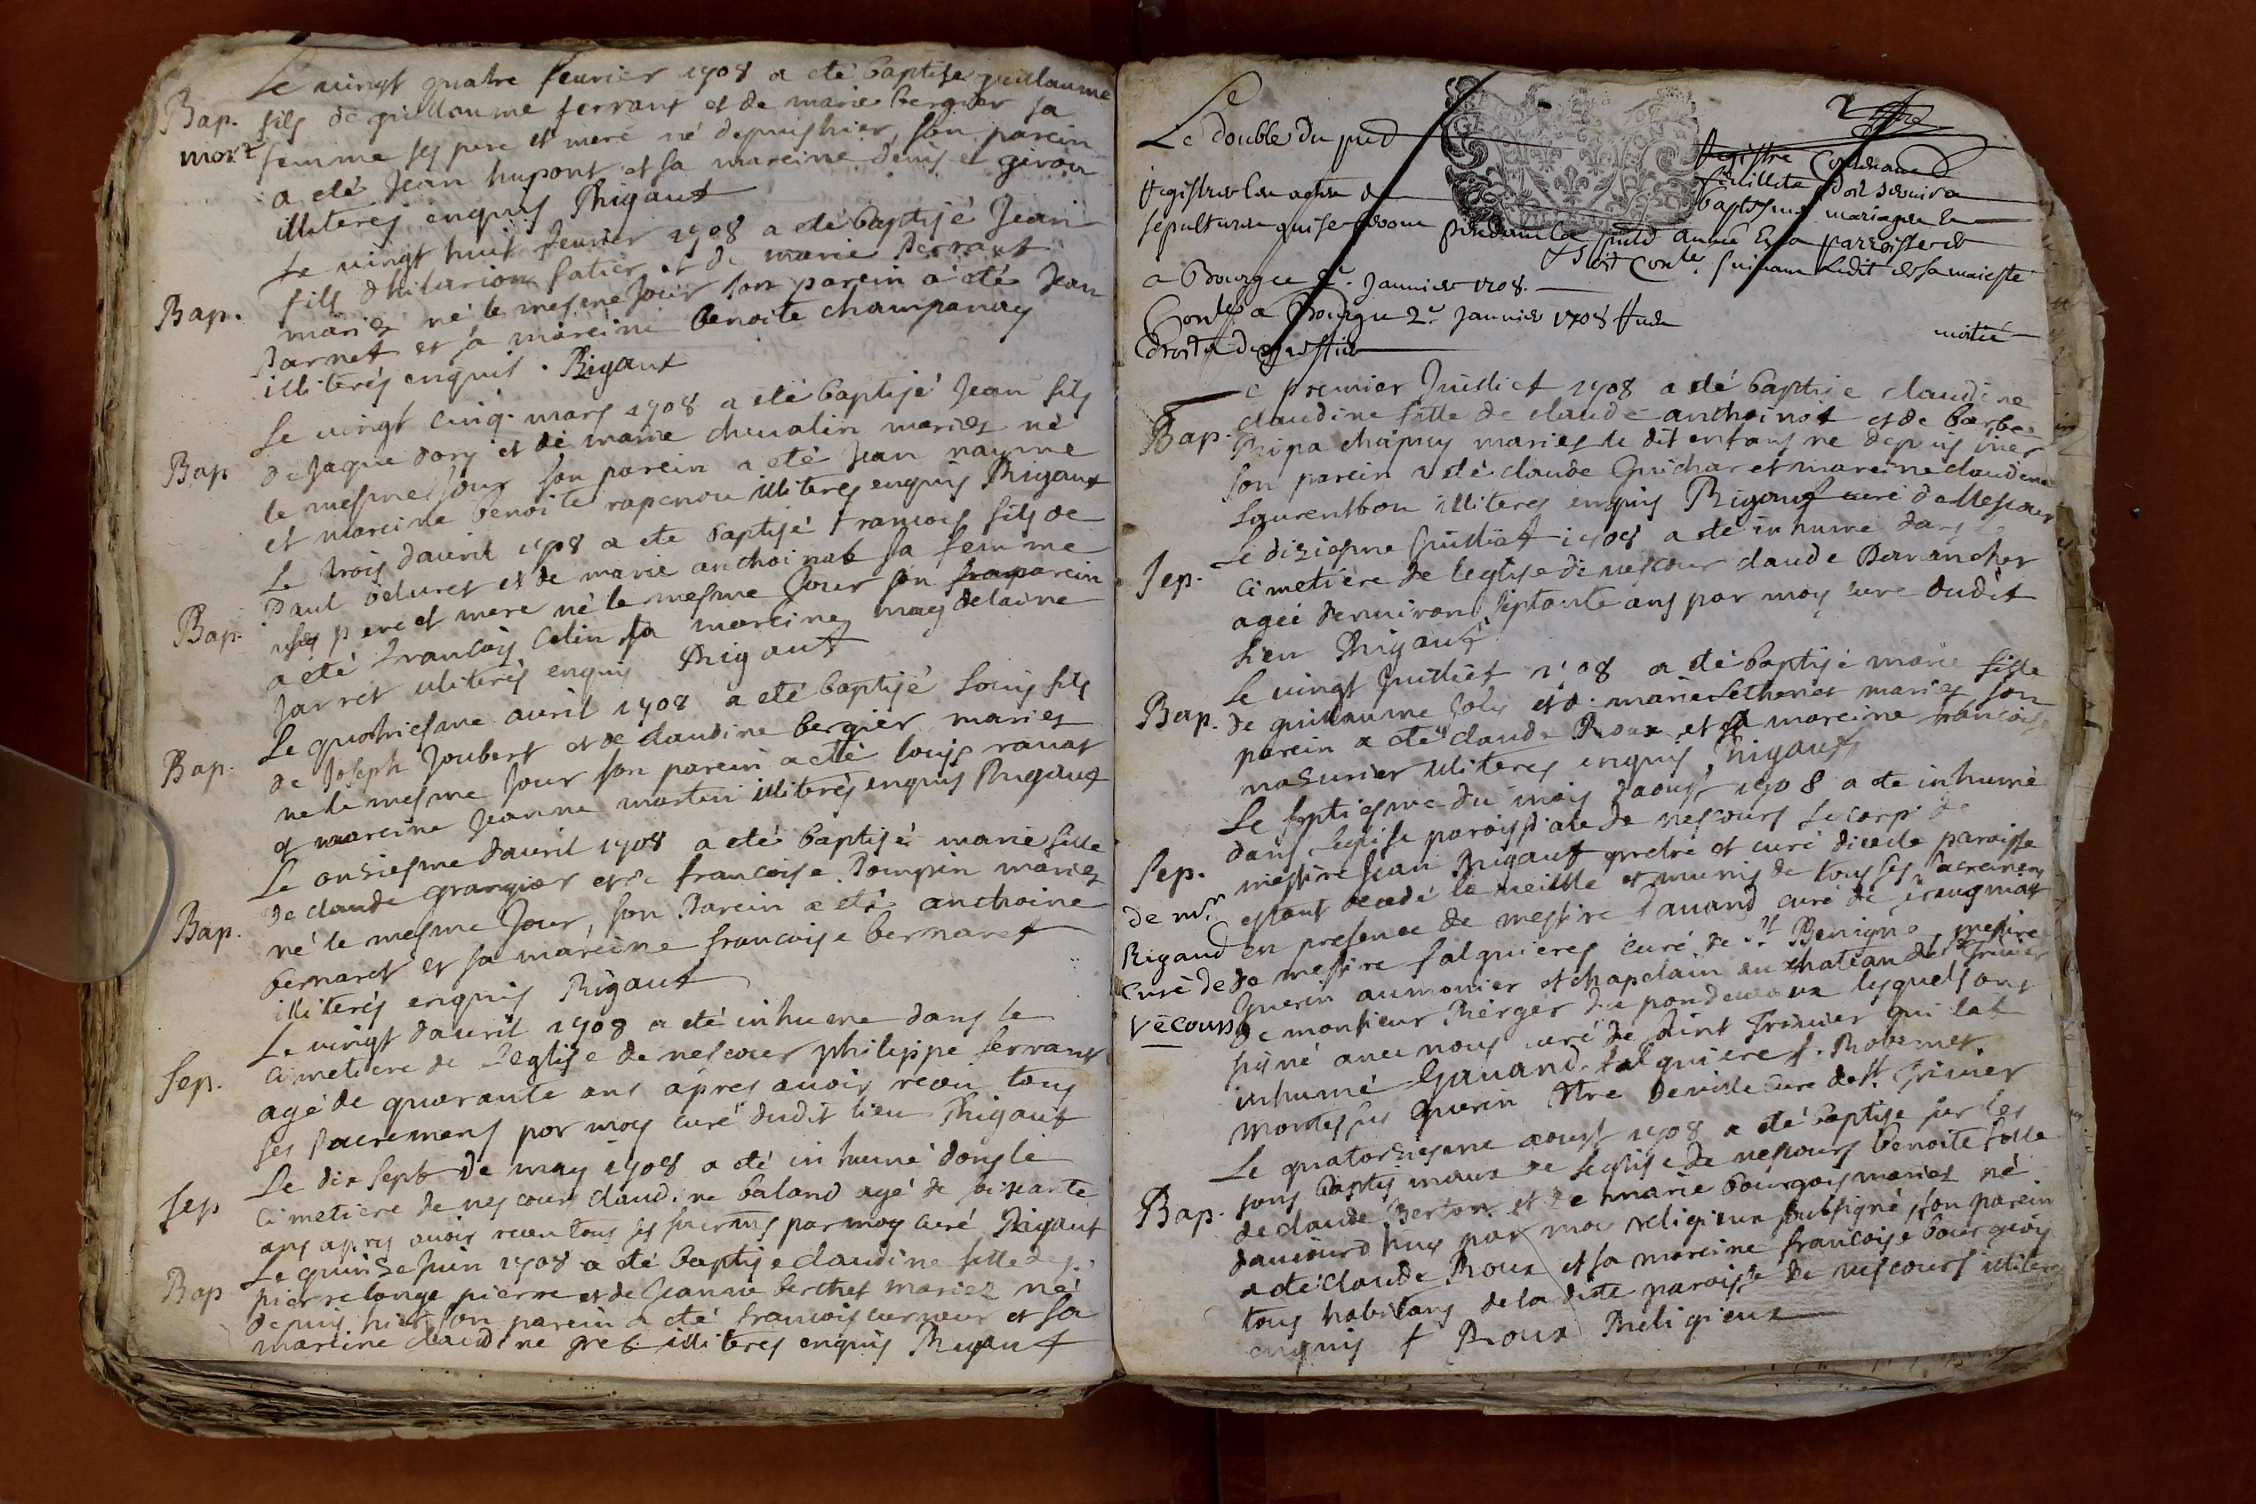 Le vingt quatre feurier 1708 a eté baptise guillaume
Bap. fils de guillaume ferrant et de marie bergier sa
mort femme ses pere et mere né depuis hier, son parein
a eté Jean hupont et sa mareine denise girou
illiterés enquis Rigaut
Le vingt huit feurier 1708 a eté baptisé Jean
fils dhilarion fatier et de marie Perraut
Bap. mariez né le mesme Jour son parein a eté Jean
Parnet et sa mareine benoite champanay
illiterés enquis. Rigaut
Le vingt cinq mars 1708 a eté baptisé Jean fils
Bap de Jaque dory et de marie cheualin mariez né
le mesme Jour son parein a eté Jean nayme
et mareine benoite rapenou illiterés enquis Rigaut
Le trois dauril 1708 a ete baptisé francois fils de
Paul veluret et de marie anthoinat sa femme
Bap. ses pere et mere né le mesme Jour son parein
a eté francois Colin sa mareine magdelaine
Jarret illiterés enquis Rigaut
Le quatriesme auril 1708 a eté baptisé Louis fils
Bap. de Joseph Joubert et de claudine bergier mariez
ne le mesme Jour son parein a eté louis rauat
et mareine Jeanne martin illiterés enquis Rigaut
Le onsiesme dauril 1708 a eté baptisé marie fille
de claude grangier et de francoise Pompin mariez
Bap. né le mesme Jour, son Parein a eté anthoine
bernaret et sa mareine francoise bernaret
illiterés enquis Rigaut
Le vingt dauril 1708 a eté inhume dans le
Sep. cimetiere de Leglise de vescour philippe ferrant
agé de quarante ans apres auoir receu tous
ses Sacremens par moy curé dudit lieu Rigaut
Le dix sept de may 1708 a eté inhumé dans le
Sep cimetiere de vescours claudine baland agé de soixante
ans apres auoir receu tous ses sacrms par moy curé Rigaut
Le quinze Juin 1708 a eté baptise claudine fille de
Bap pierre longe pierre et de Jeanne berthet mariez né
depuis hier son parein a eté francois curneur et sa
mareine claudine greb illiterés enquis Rigaut
2
Le double du pnt Registre Contenant
feuillets doit servir a
Registrer les actes de baptesmes mariages et
sepultures qui se feront pendant la pnte année En la parroisse de
Soit Conle. suivant Ledit de sa maieste
a Bourg ce 2e. Janvier 1708.
Conle a Bourg ce 2e Janvier 1708
moitié
Le premier Juillet 1708 a eté baptise claudine
Bap. claudine fille de claude anthoinat et de barbe
Ripa chapuy mariez le dit enfant ne depuis hier
son parein a eté claude Guichar et mareine claudine
Laurenthon illiteres enquis Rigaut curé de Vescour
Le dixiesme Juilliet 1708 a ete inhume dans
Sep. cimetiere de leglise de vescour claude Demancher
ageé denuiron septante ans par moy cure dudit
lieu Rigaut
Le vingt Juilliet 1708 a eté baptisé marie fille
Bap. de guillaume Joly et de marie Lethenet mariez son
parein a eté claude Roux et sa mareine francoise
masurier illiteres enquis Rigaut
Le septiesme du mois daoust 1708 a ete inhumé
dans leglise paroissiale de vescours Le corp de
Sep. messire Jean Rigaut prêtre et curé dicelle paroisse
de mr. estant decedé la veille et munis de tous ses sacremens
Rigaud en presence de messire Gauand curé de
curé de de messire falguieres curé de st Benigne, messire
Vécours Guerin aumonier et chapelain au chateau de st Triuier
de monsieur Berger du pondevaux lesquels ont
signé auec nous curé de saint Triuier qui lat
inhumé Gauand. falguiere f. Robernet
Guerin Ptre Deville Curé de st. Triuier
Le quatorziesme aoust 1708 a eté baptise sur les
fons baptismaux de leglise de vescours benoite fille
Bap. de claude Berton et de marie bourgois mariez né
daujourdhuy par moy religieux soubsigné, son parein
a eté claude Roux et sa mareine francoise bourgois
tous habitans de la dite paroisse de vescours illiteres
enquis f Roux Religieux